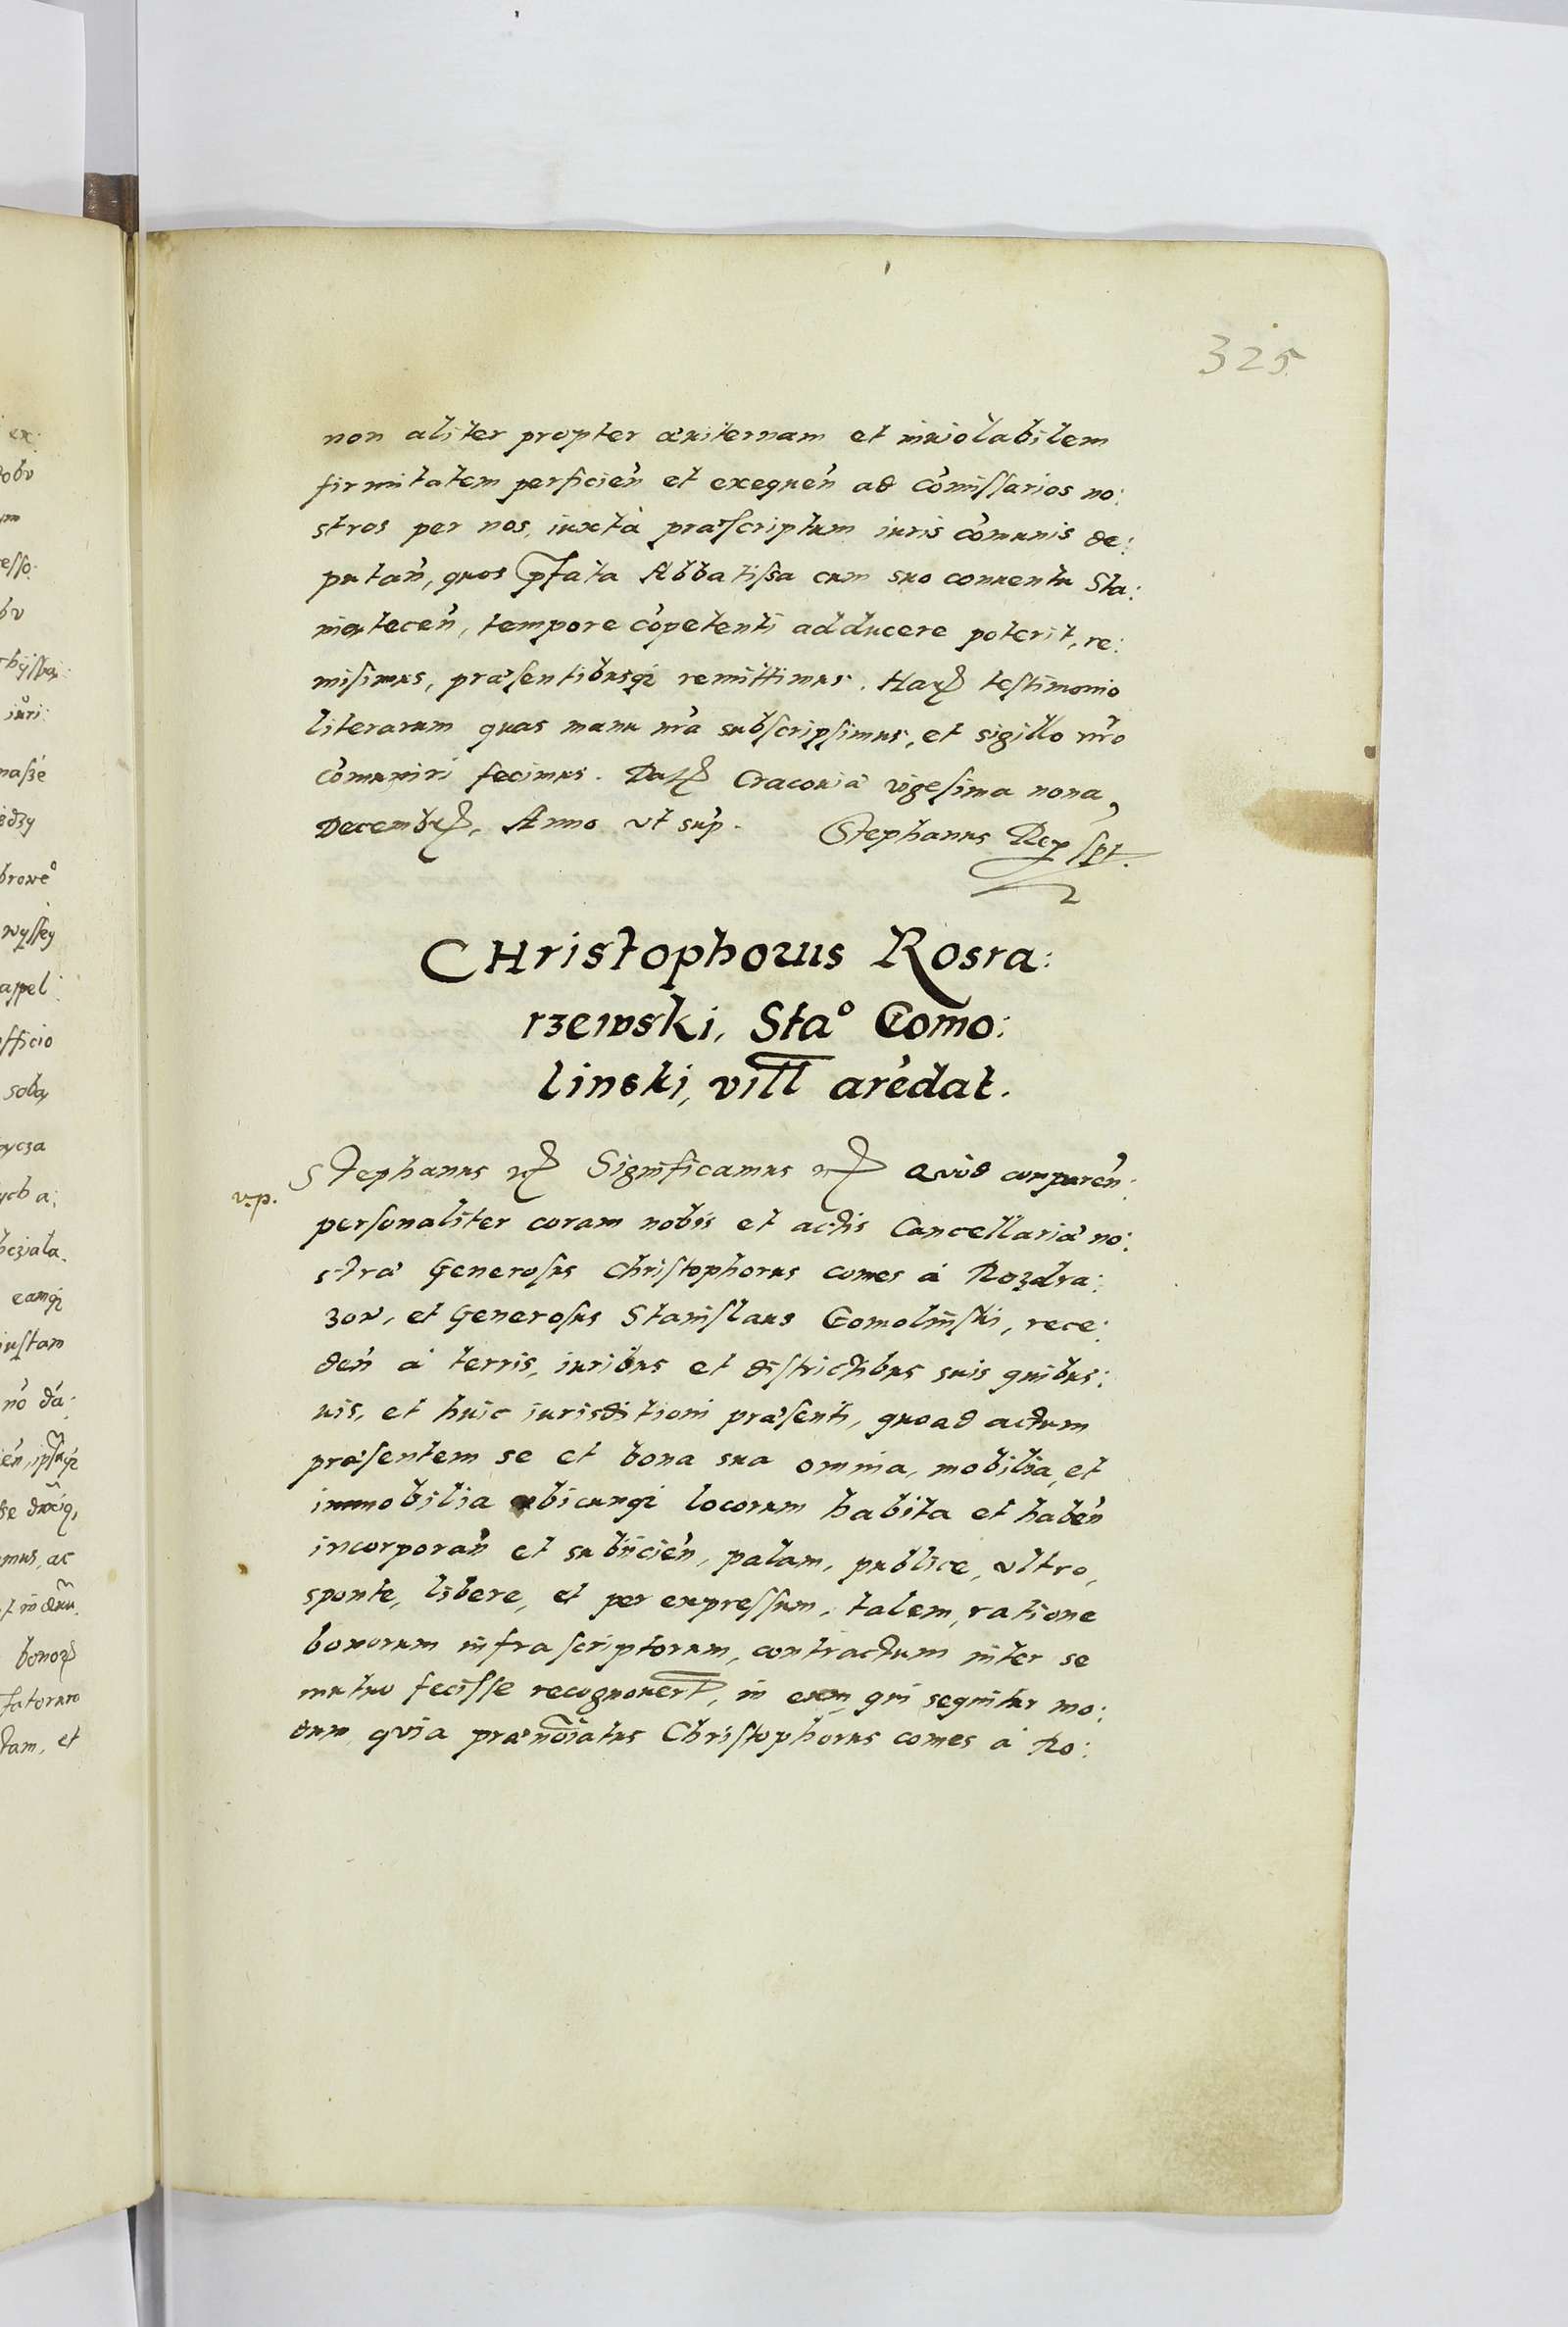 325
non aliter propter æuiternam et inuiolabilem
firmitatem perficień et exequeń ad com̃issarios no:
stros per nos, iuxtà præscriptum iuris com̃unis de:
putań, quos p̃fata Abbatissa cum suo conuentu Sta:
niąteceń, tempore cop̃etenti adducere poterit, re:
misimus, præsentibusq; remittimus. Harꝝ testimonio
literarum quas manu nr̃a subscripsimus, et sigillo nr̃o
com̃uniri fecimus. Datꝭ Cracouiæ vigesima nona,
Decembrꝭ, Anno vt sup̃. Stephanus Rex sp̃t.
CHristophorus Rosra:
rzewski, Sta° Gomo:
linski, vill̃ arēdat.
v.p.
Stephanus ꝛꝭ Significamus ꝛꝭ Quod compareń:
personaliter coram nobis et actis Cancellariæ no:
stræ Generosus Christophorus comes à Rozdra:
zow, et Generosus Stanislaus Gomolinski, rece:
deń à terris, iuribus et districtibus suis quibus:
uis, et huic iurisditioni præsenti, quoad actum
præsentem se et bona sua omnia, mobilia, et
immobilia ubicunq; locorum habita et habeń
incorporań et subiicień, palam, publice, vltro,
sponte, libere, et per expressum, talem, ratione
bonorum infrascriptorum, contractum inter se
mutuo fecisse recognouerũt, in eum, qui sequitur mo:
dum quia prænoĩatus Christophorus comes à Ro: